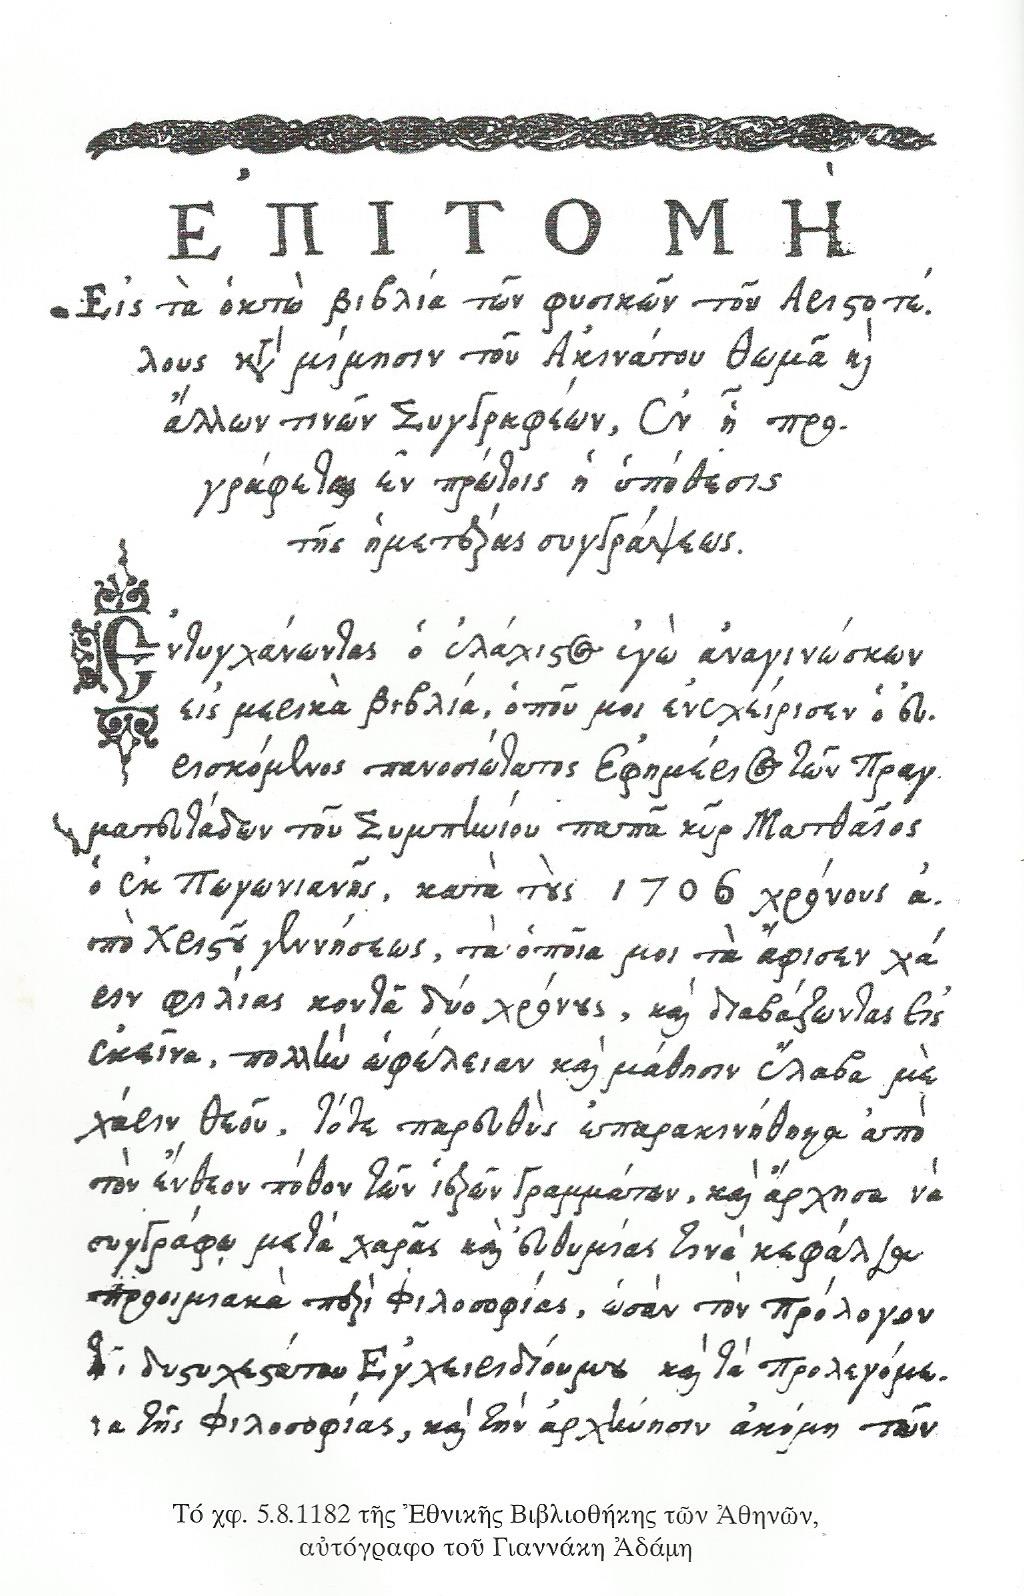 ἘΠΙΤΟΜῊ
Εἰς τὰ ὀκτὼ βιβλία τῶν φυσικῶν τοῦ Αριςοτέ-
λους κατὰ μίμησιν τοῦ Ἀκινάτου Θωμᾶ καὶ
ἄλλων τινῶν Συγγραφέων, Ἐν ᾗ προ-
γράφεται ἐν πρώτοις ἡ ὑπόθεσις
τῆς ἡμετέρας συγγράψεως.
Ἐντυγχάνωντας ὁ ἐλάχιςος ἐγὼ ἀναγινώσκων
εἰς μερικὰ βιβλία, ὁποῦ μοι ἐνεχείρισεν ὁ εὑ-
ρισκόμενος πανοσιώτατος Ἐφημέριος τῶν Πραγ-
ματευτάδων τοῦ Συμπινίου παπᾶ κὺρ Ματθαῖος
ὁ ἐκ Πωγωνιανῆς, κατὰ τοὺς 1706 χρόνους ἀ-
πὸ Χριςοῦ γεννήσεως, τὰ ὁποῖα μοι τὰ ἄφισεν χά
ριν φιλίας κοντὰ δύο χρόνους, καὶ διαβάζωντας εἰς
ἐκεῖνα, πολλὴν ὠφέλειαν καὶ μάθησιν ἔλαβα μὲ
χάριν θεοῦ. Τότε παρευθὺς ἐπαρακινήθηκα ἀπὸ
τὸν ἔνθεον πόθον τῶν ἱερῶν γραμμάτων, καὶ ἄρχησα νὰ
συγγράφω μετὰ χαρᾶς καὶ εὐθυμίας τινὰ κεφάλαια
προοιμιακὰ περὶ Φιλοσοφίας, ὡσὰν τὸν πρόλογον
δυςυχεςάτου Ἐγχειριδίουμου καὶ τὰ προλεγόμε-
να τῆς Φιλοσοφίας, καὶ τὴν ἀρχήνησιν ἀκόμη τῶν
Τό χφ. 5.8.1182 τῆς Ἐθνικῆς Βιβλιοθήκης τῶν Ἀθηνῶν,
αὐτόγραφο τοῦ Γιαννάκη Ἀδάμη